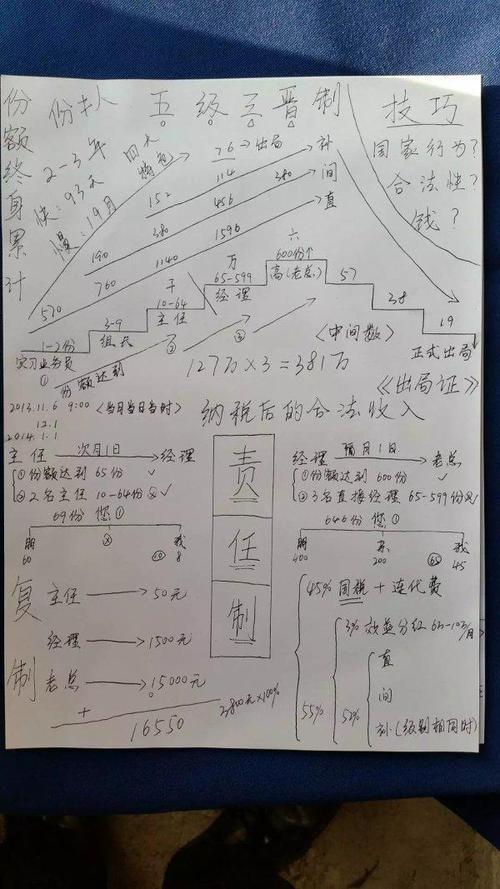 份额终身累计
份 丰 人 五级三晋制
技巧
国家行为?
合法性?
钱?
2-3年
快:93天
慢:19月
四大
特色
76→出局
补
152 114
间
190 380 456 380
直
570 760 1140 1596
万
六
600份个
高(老总)
57
38
19
正式出局
65-599
经理
10-64
主任
3-9
组长
1-2份
实习业务员
①
份额达到
②
③
<中间数>
127万×3=381万
《出局证》
2013.11.6 9:00 <当月当日当时>
12.1
2014.1.1
纳税后的合法收入
主任 次月1日 经理
①份额达到 65份 ✓
②2名主任 10-64份
69份 您①
朋
60
我
8
责任制
经理 隔月1日 老总
①份额达到 600份 ✓
②3名直接经理 65-599份
646份 您①
朋
400
亲
200
我
45
复制
主任→50元
经理→1500元
老总→15000元
+
16550
3800元×100%
45% 国税+连代费
55%
3%效益分红 6万-10万/月
52%
直
间
补(级别相同时)